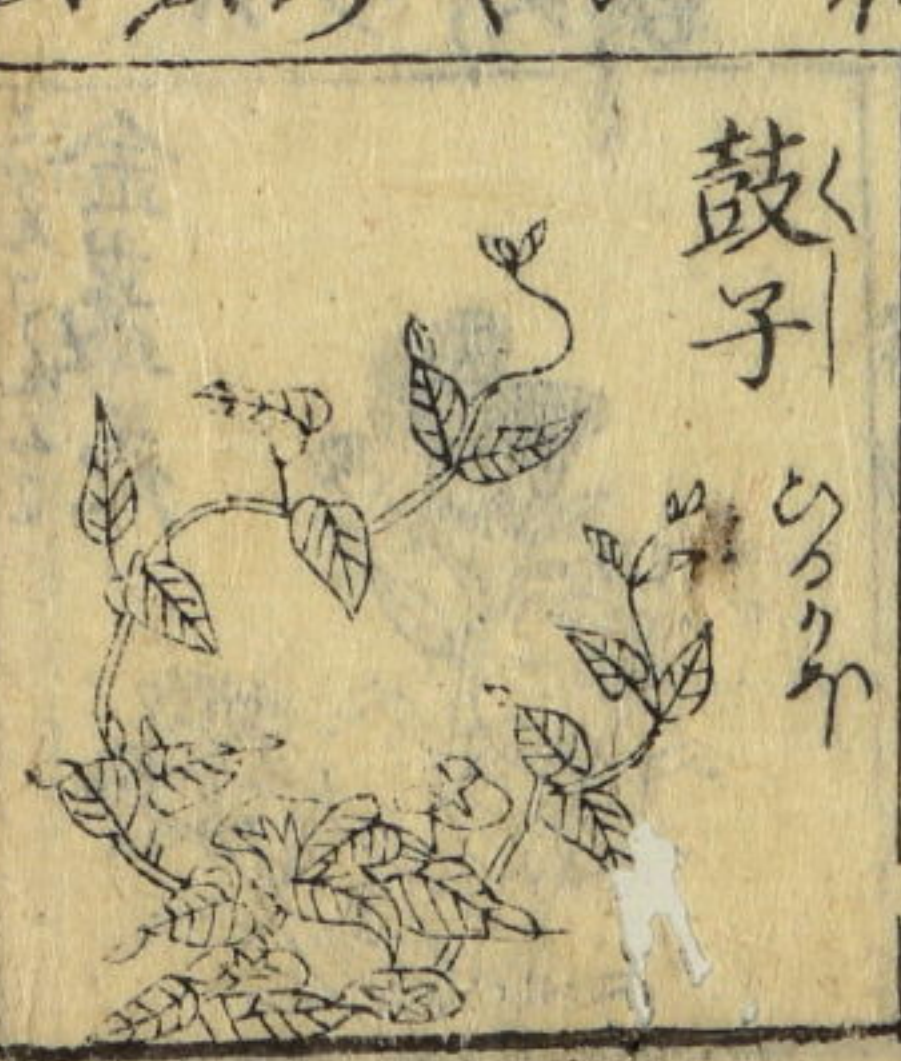 鼓子
くし
ひるかほ